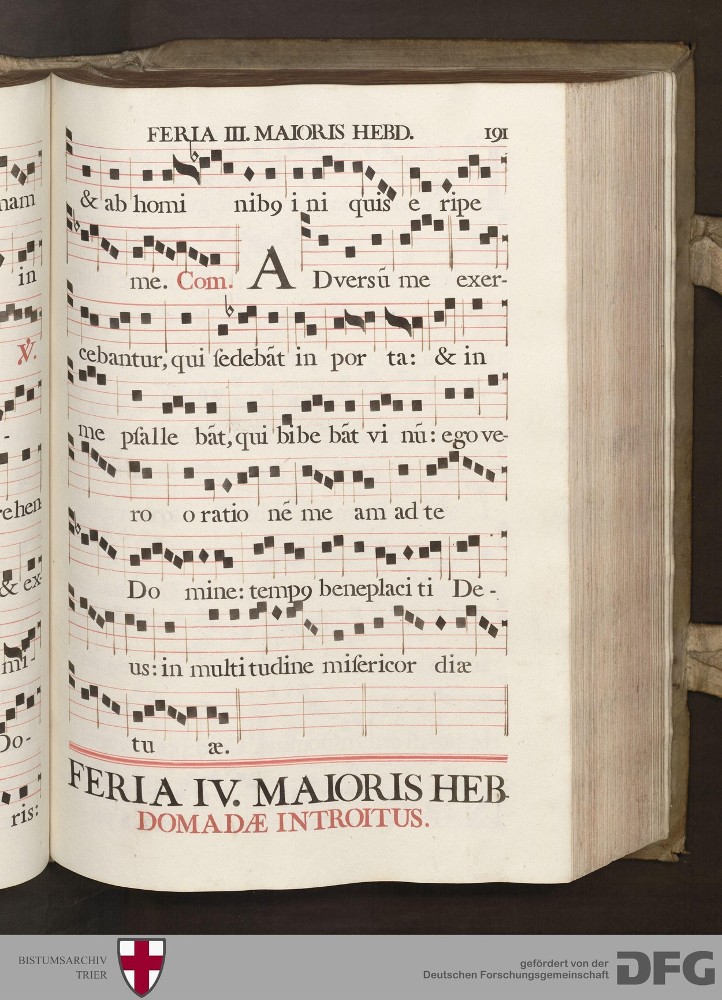 FERIA III. MAIORIS HEBD. 191
& ab homi nib9 i ni quis e ripe
me. Com. A Dversū me exer-
cebantur, qui ſedebāt in por ta: & in
me pſalle bāt, qui bibe bāt vi nū: ego ve-
ro o ratio nē me am ad te
Do mine: temp9 beneplaci ti De-
us: in multi tudine miſericor diæ
tu æ.
FERIA IV. MAIORIS HEB-
DOMADÆ INTROITUS.
nam
in
℣.
-
rehen
& ex-
mi-
Do-
ris:
BISTUMSARCHIV
TRIER
gefördert von der
Deutschen Forschungsgemeinschaft
DFG